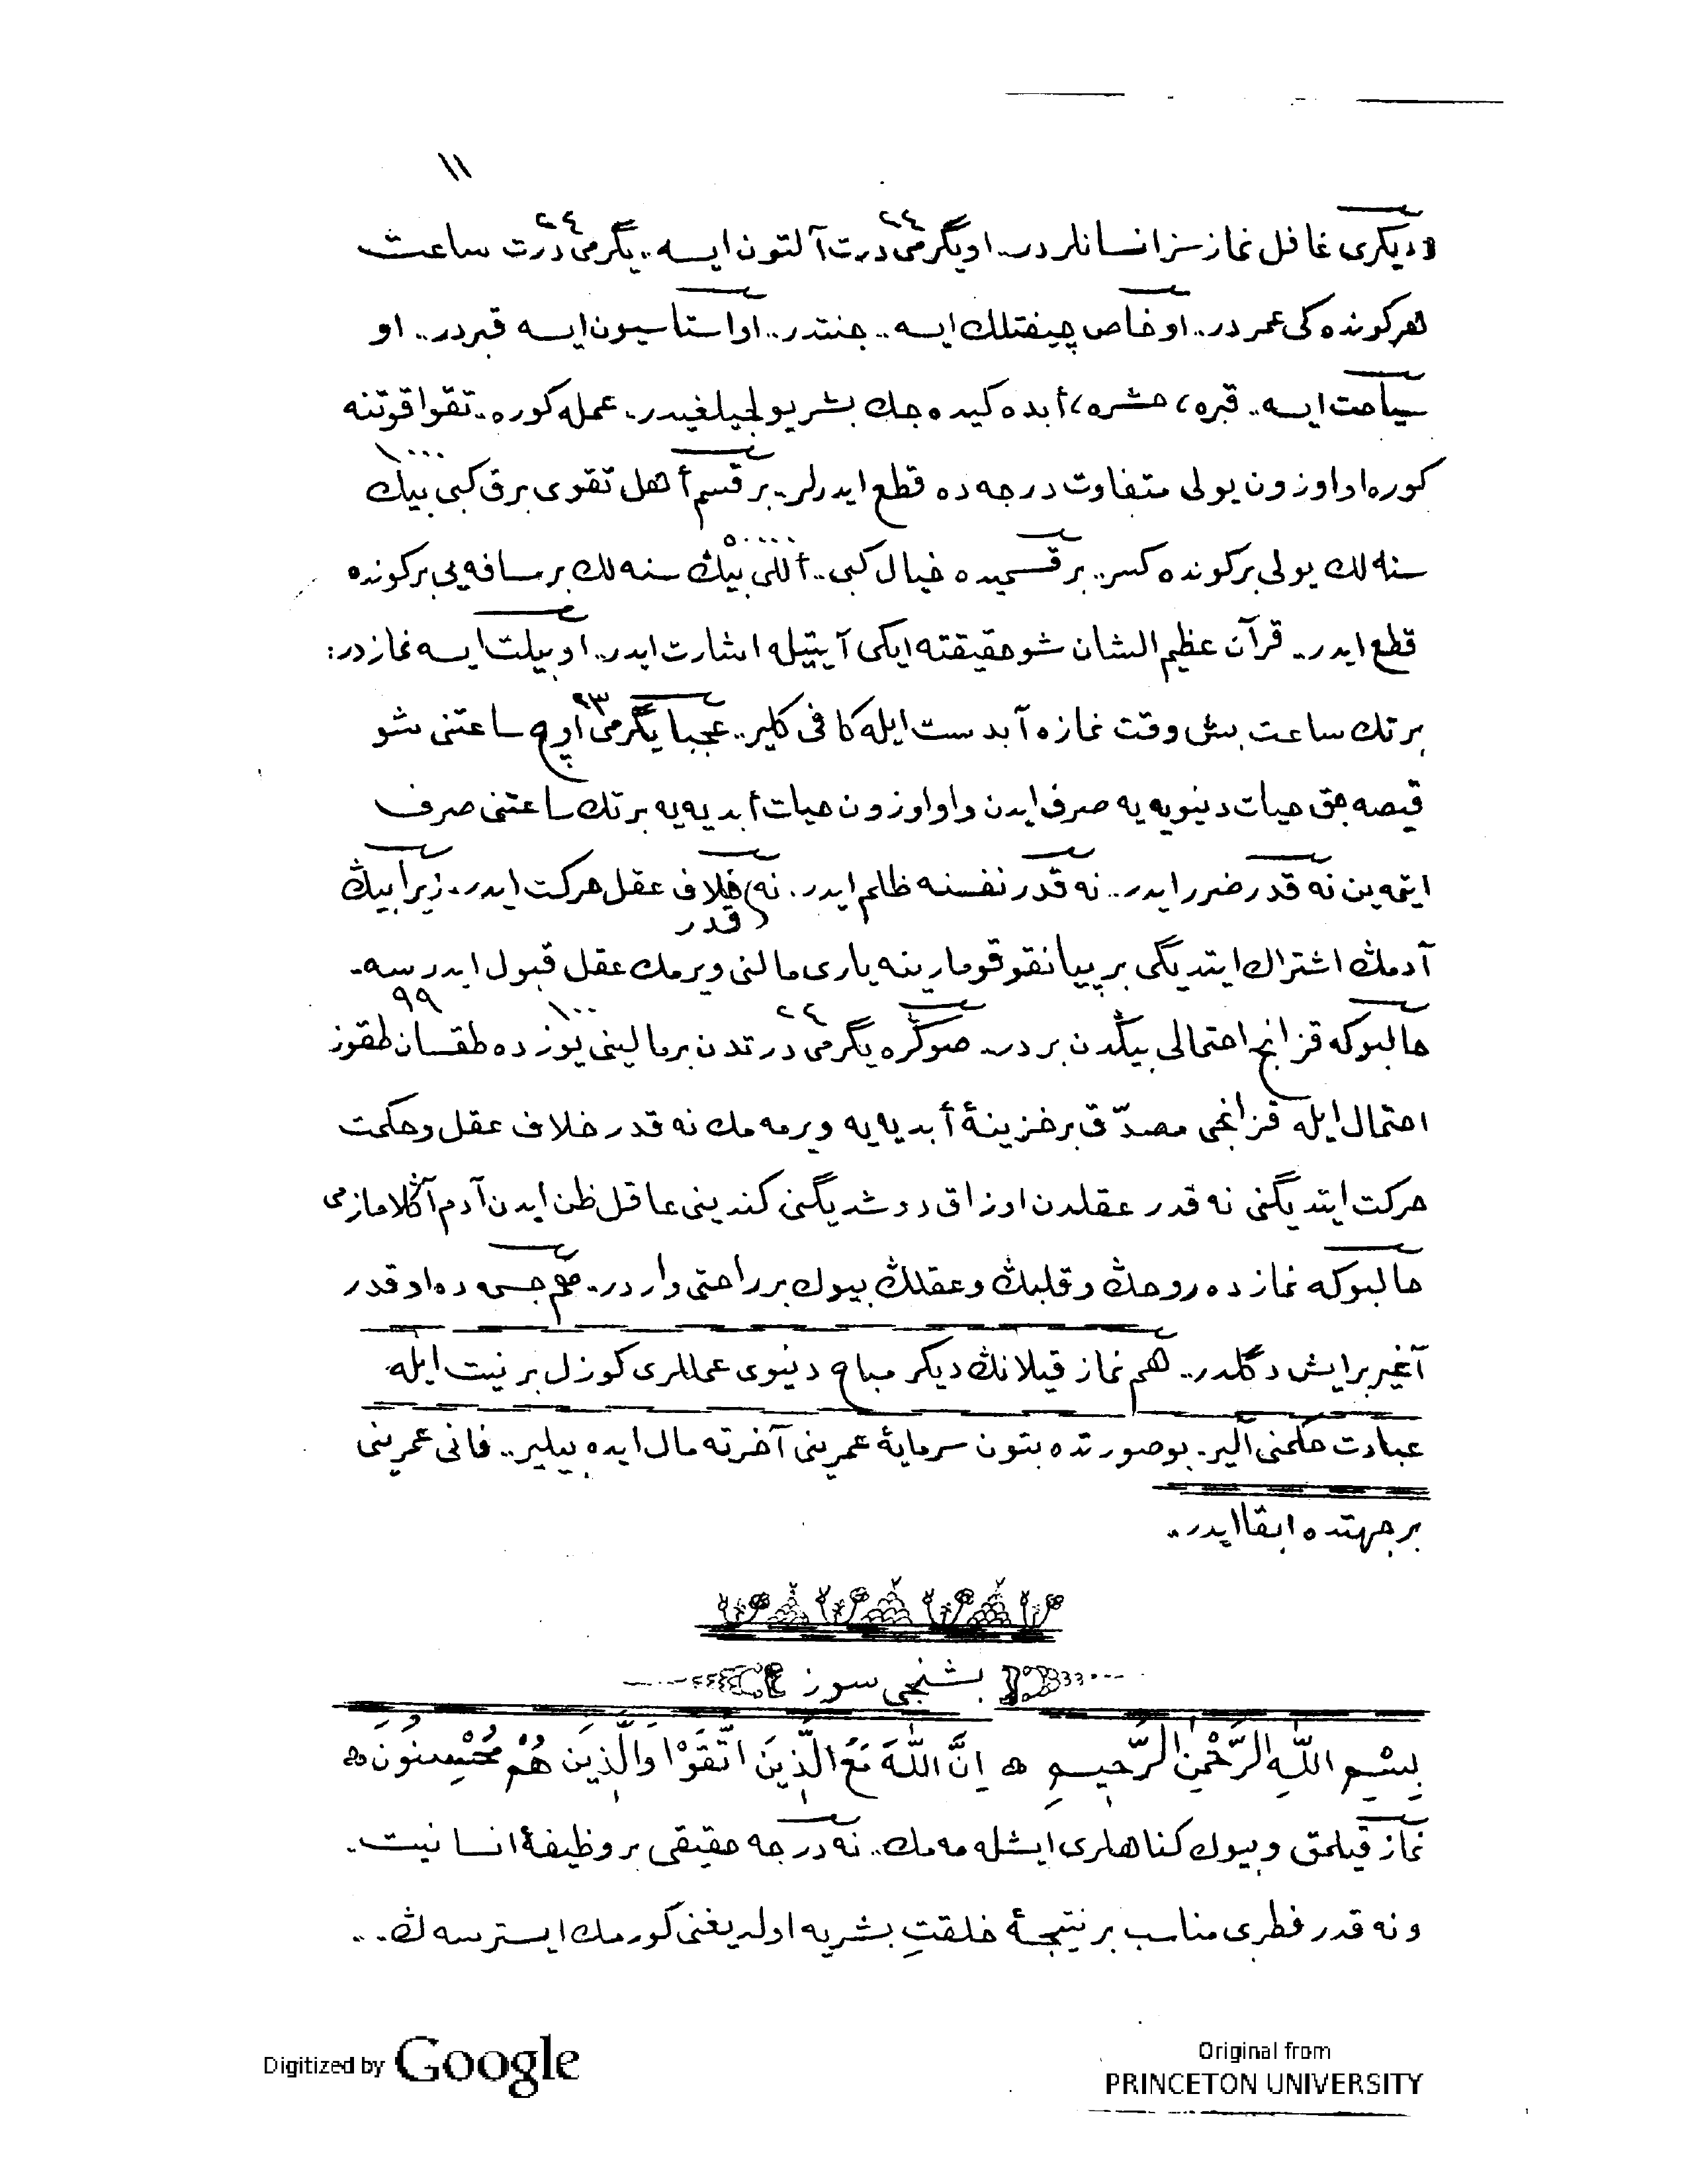 ١١
ديگرى غافل نمازسز انسانلردر.. او يگرمى درت آلتون ايسه.. يگرمى درت ساعت
٢٤ ٢٤
هر كونده كى عمردر.. او خاص چيفتلك ايسه.. جنتدر.. او استاسيون ايسه قبردر.. او
سياحت ايسه.. قبره، حشره، أبده كيده جك بشر يولجيلغيدر. عمله كوره. تقوا قوتنه
كوره او اوزون يولى متفاوت درجه ده قطع ايدرلر. بر قسم أهل تقوى برق كبى بيك
١٠٠٠
سنه لك يولى بر كونده كسر.. بر قسميده خيال كبى.. أللى بيڭ سنه لك بر مسافه يى بر كونده
٥٠٠٠٠
قطع ايدر.. قرآن عظيم الشان شو حقيقته ايكى آيتيله اشارت ايدر.. او بيلت ايسه نمازدر:
بر تك ساعت بش وقت نمازه آبدست ايله كافى كلير.. عجبا يگرمى اوچ ساعتنى شو
٢٣
قيصه جق حيات دنيويه يه صرف ايدن و او اوزون حيات أبديه يه بر تك ساعتنى صرف
ايتمه ين نه قدر ضرر ايدر.. نه قدر نفسنه ظلم ايدر. نه قدر خلاف عقل حركت ايدر. زيرا بيڭ
آدمڭ اشتراك ايتديگى بر پيانقو قومارينه يارى مالنى ويرمك عقل قبول ايدرسه.
حالبوكه قزانج احتمالى بيڭدن بردر.. صوڭره يگرمى درتدن بر مالينى يوزده طقسان طقوز
٢٤ ١٠٠ ٩٩
احتمال ايله قزانجى مصدّق بر خزينۀ أبديه يه ويرمه مك نه قدر خلاف عقل و حكمت
حركت ايتديگنى نه قدر عقلدن اوزاق دوشديگنى كندينى عاقل ظن ايدن آدم آڭلامازمى
حالبوكه نمازده روحڭ و قلبڭ و عقلڭ بيوك بر راحتى واردر. هم جسمه ده او قدر
آغير بر ايش دگلدر.. هم نماز قيلانڭ ديكر مباح دنيوى عمللرى كوزل بر نيت ايله
عبادت حكمنى آلير. بو صورتده بتون سرمايۀ عمرينى آخرته مال ايده بيلير.. فانى عمرينى
بر جهتده ابقا ايدر..
بشنجى سوز
بِسْمِ اللّٰهِ الرَّحْمٰنِ الرَّحِيمِ ۞ اِنَّ اللّٰهَ مَعَ الَّذِينَ اتَّقَوْا وَالَّذِينَ هُمْ مُحْسِنُونَ ۞
نماز قيلمق و بيوك كناهلرى ايشله مه مك.. نه درجه حقيقى بر وظيفۀ انسانيت.
و نه قدر فطرى مناسب بر نتيجۀ خلقتِ بشريه اولديغنى كورمك ايسترسه ڭ..
Digitized by Google
Original from
PRINCETON UNIVERSITY